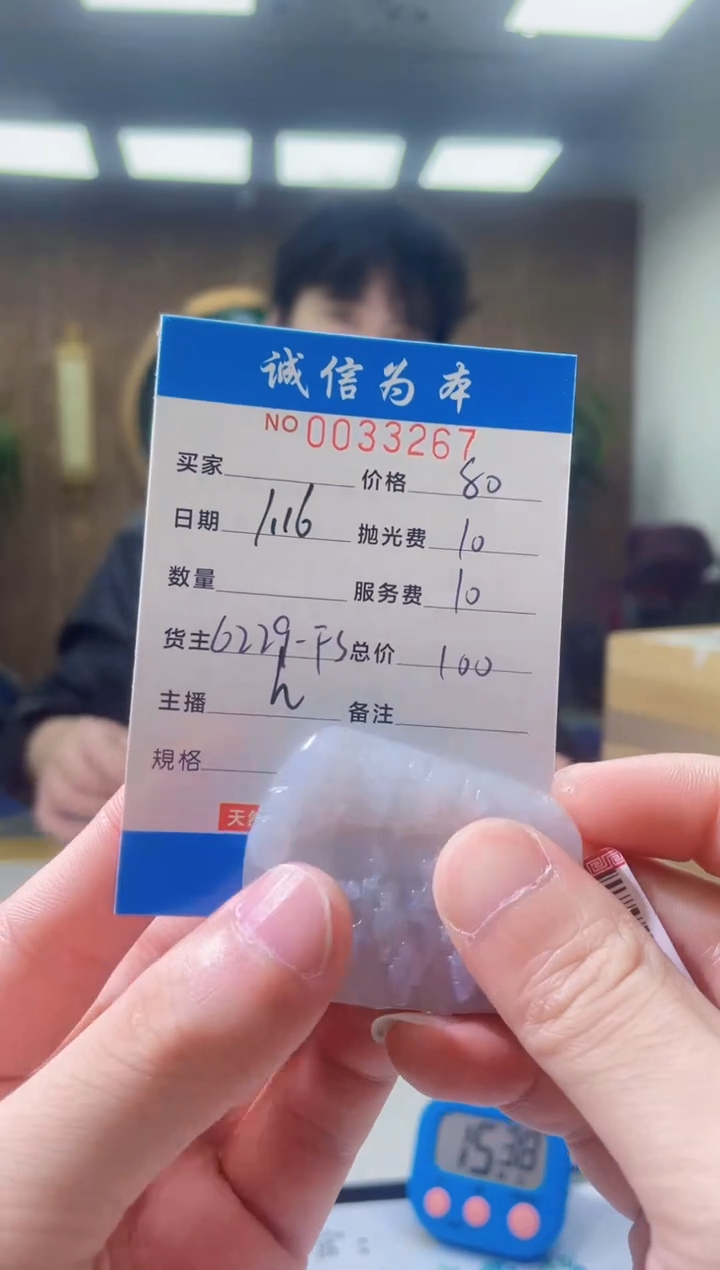 诚信为本
NO 0033267
买家 价格 80
日期 1.16 抛光费 10
数量 服务费 10
货主 6229-FS 总价 100
主播 h 备注
規格
天
15:38